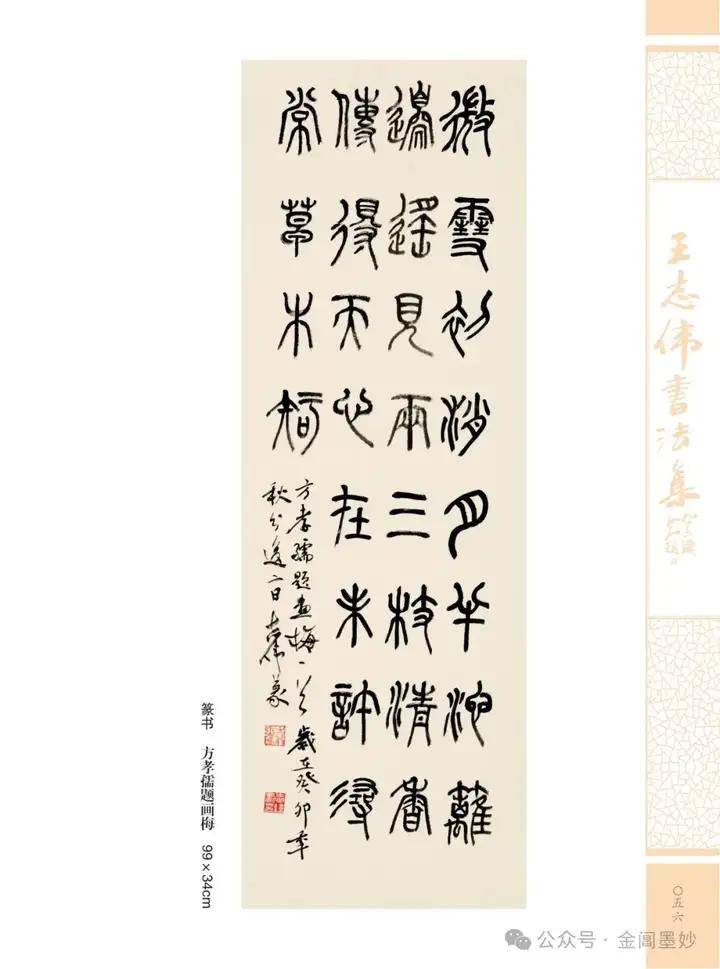 微雪初消月半池籬
邊遥見兩三枝清香
傳得天心在未許尋
常草木知
方孝孺題畫梅一首 歲在癸卯年
秋分後二日 志偉篆
篆书 方孝儒题画梅 99×34cm
王志伟書法集
〇五六
公众号·金阊墨妙